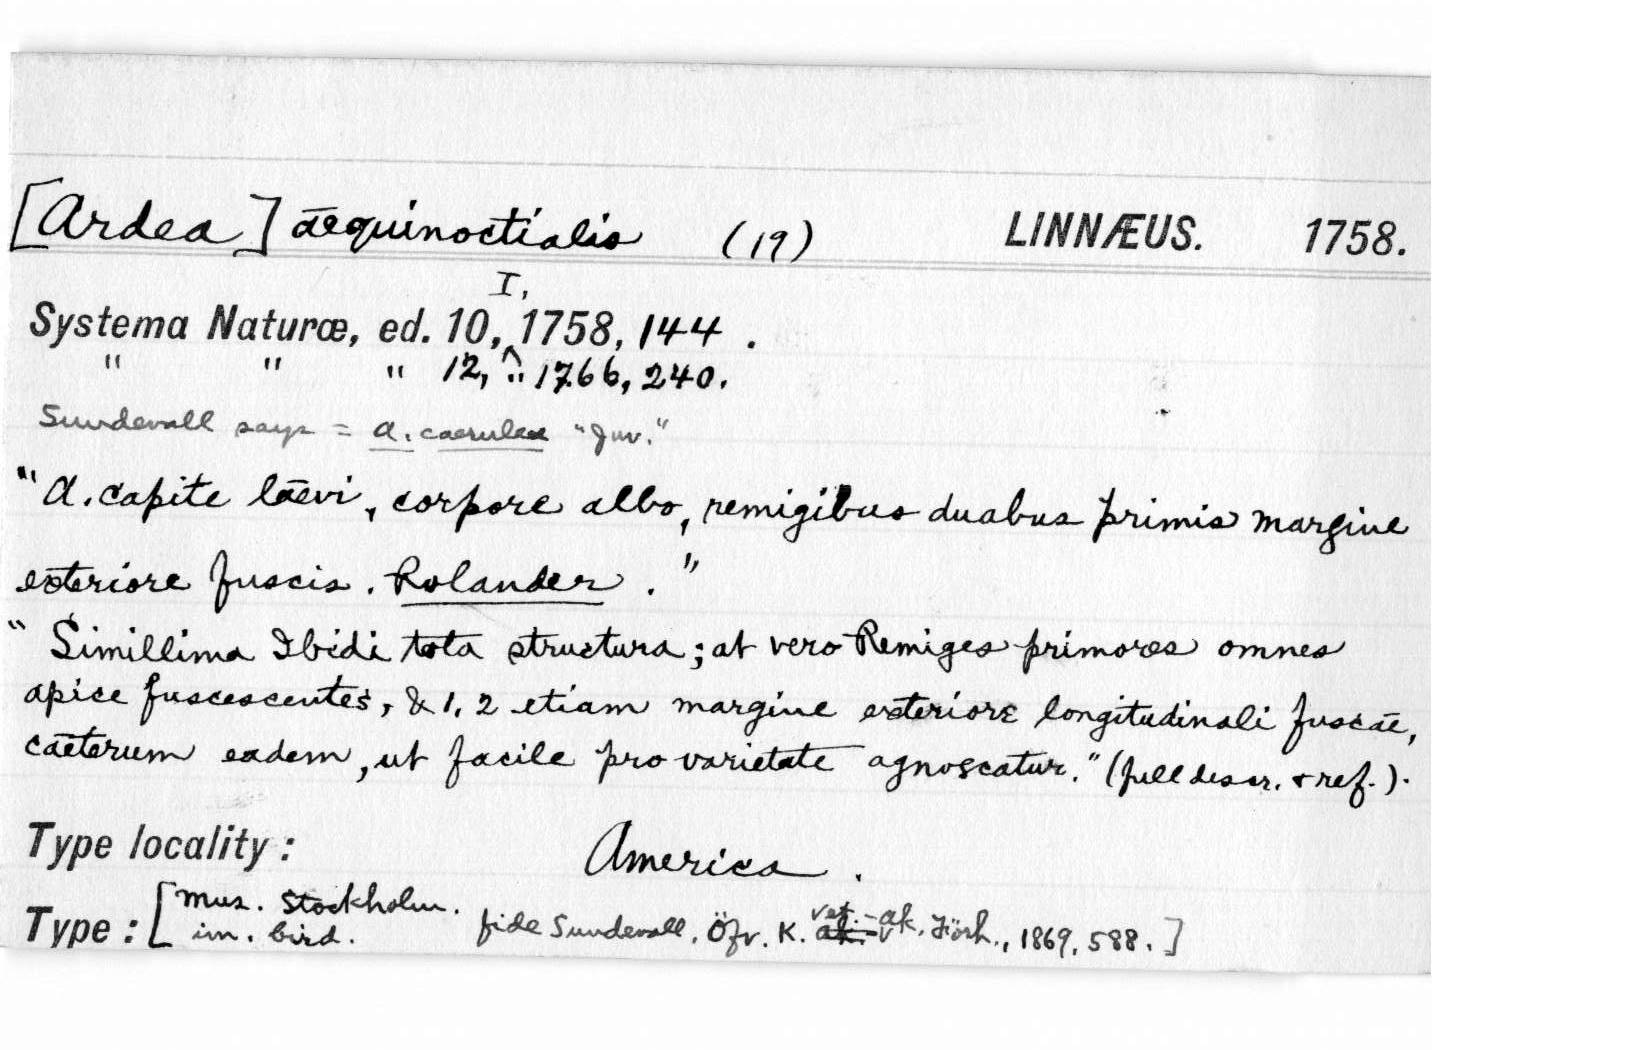 [Ardea] æquinoctialis (19) LINNÆUS. 1758.
I,
Systema Naturæ, ed. 10, ^ 1758, 144.
" " " 12, " 1766, 240.
Sundevall says = A. caerulea "Juv."
"A. capite lævi, corpore albo, remigibus duabus primis margine
exteriore fuscis. Rolander."
"Simillima Ibidi tota structura; at vero Remiges primores omnes
apice fuscescentes, & 1, 2 etiam margine exteriore longitudinali fuscæ,
cæterum eadem, ut facile pro varietate agnoscatur." (full descr. + ref.).
Type locality: America.
Type: [Mus. Stockholm.
im. bird. fide Sundevall, Öfv. K. vet.-ak. Förh., 1869, 588.]